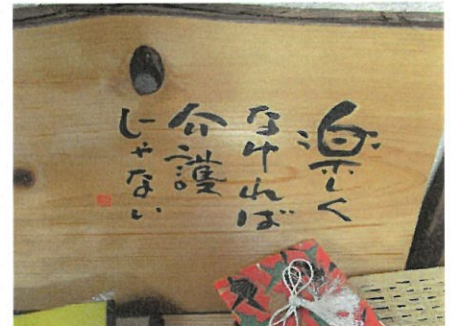 楽しく
なければ
介護
じゃない